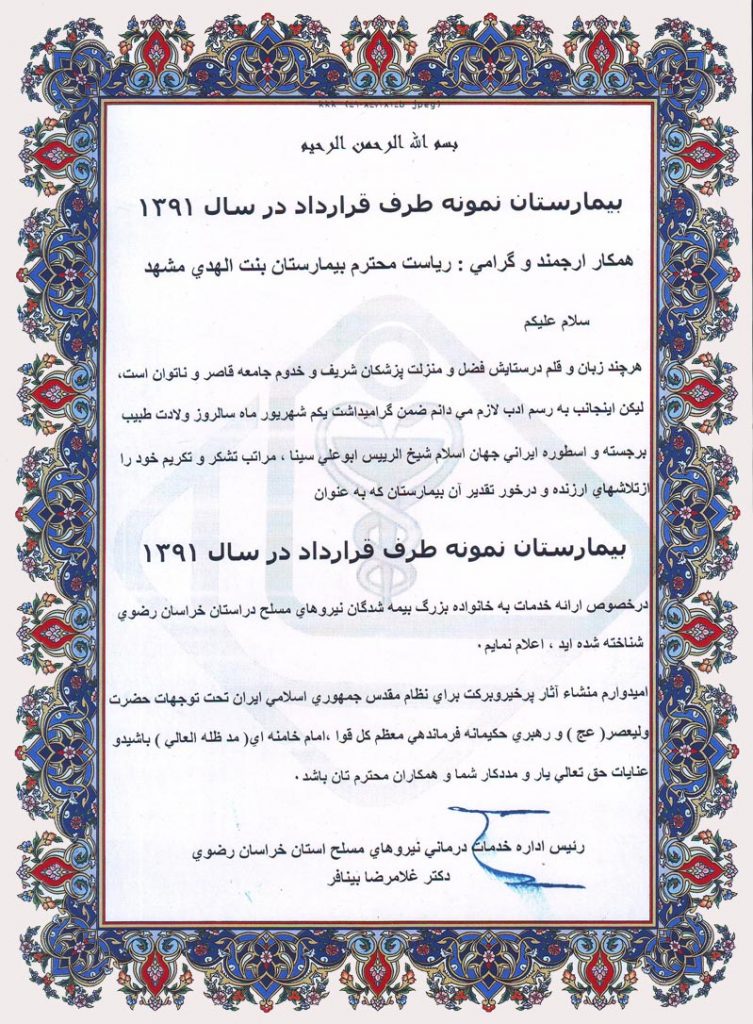 بسم الله الرحمن الرحيم
بيمارستان نمونه طرف قرارداد در سال ۱۳۹۱
همكار ارجمند و گرامي : رياست محترم بيمارستان بنت الهدي مشهد
سلام عليكم
هرچند زبان و قلم درستايش فضل و منزلت پزشكان شريف و خدوم جامعه قاصر و ناتوان است،
ليكن اينجانب به رسم ادب لازم مي دانم ضمن گراميداشت يكم شهريور ماه سالروز ولادت طبيب
برجسته و اسطوره ايراني جهان اسلام شيخ الرييس ابوعلي سينا ، مراتب تشكر و تكريم خود را
ازتلاشهاي ارزنده و درخور تقدير آن بيمارستان كه به عنوان
بيمارستان نمونه طرف قرارداد در سال ۱۳۹۱
درخصوص ارائه خدمات به خانواده بزرگ بيمه شدگان نيروهاي مسلح دراستان خراسان رضوي
شناخته شده ايد ، اعلام نمايم.
اميدوارم منشاء آثار پرخيروبركت براي نظام مقدس جمهوري اسلامي ايران تحت توجهات حضرت
وليعصر( عج ) و رهبري حكيمانه فرماندهي معظم كل قوا ،امام خامنه اي( مد ظله العالي ) باشيدو
عنايات حق تعالي يار و مددكار شما و همكاران محترم تان باشد.
رئيس اداره خدمات درماني نيروهاي مسلح استان خراسان رضوي
دكتر غلامرضا بينافر